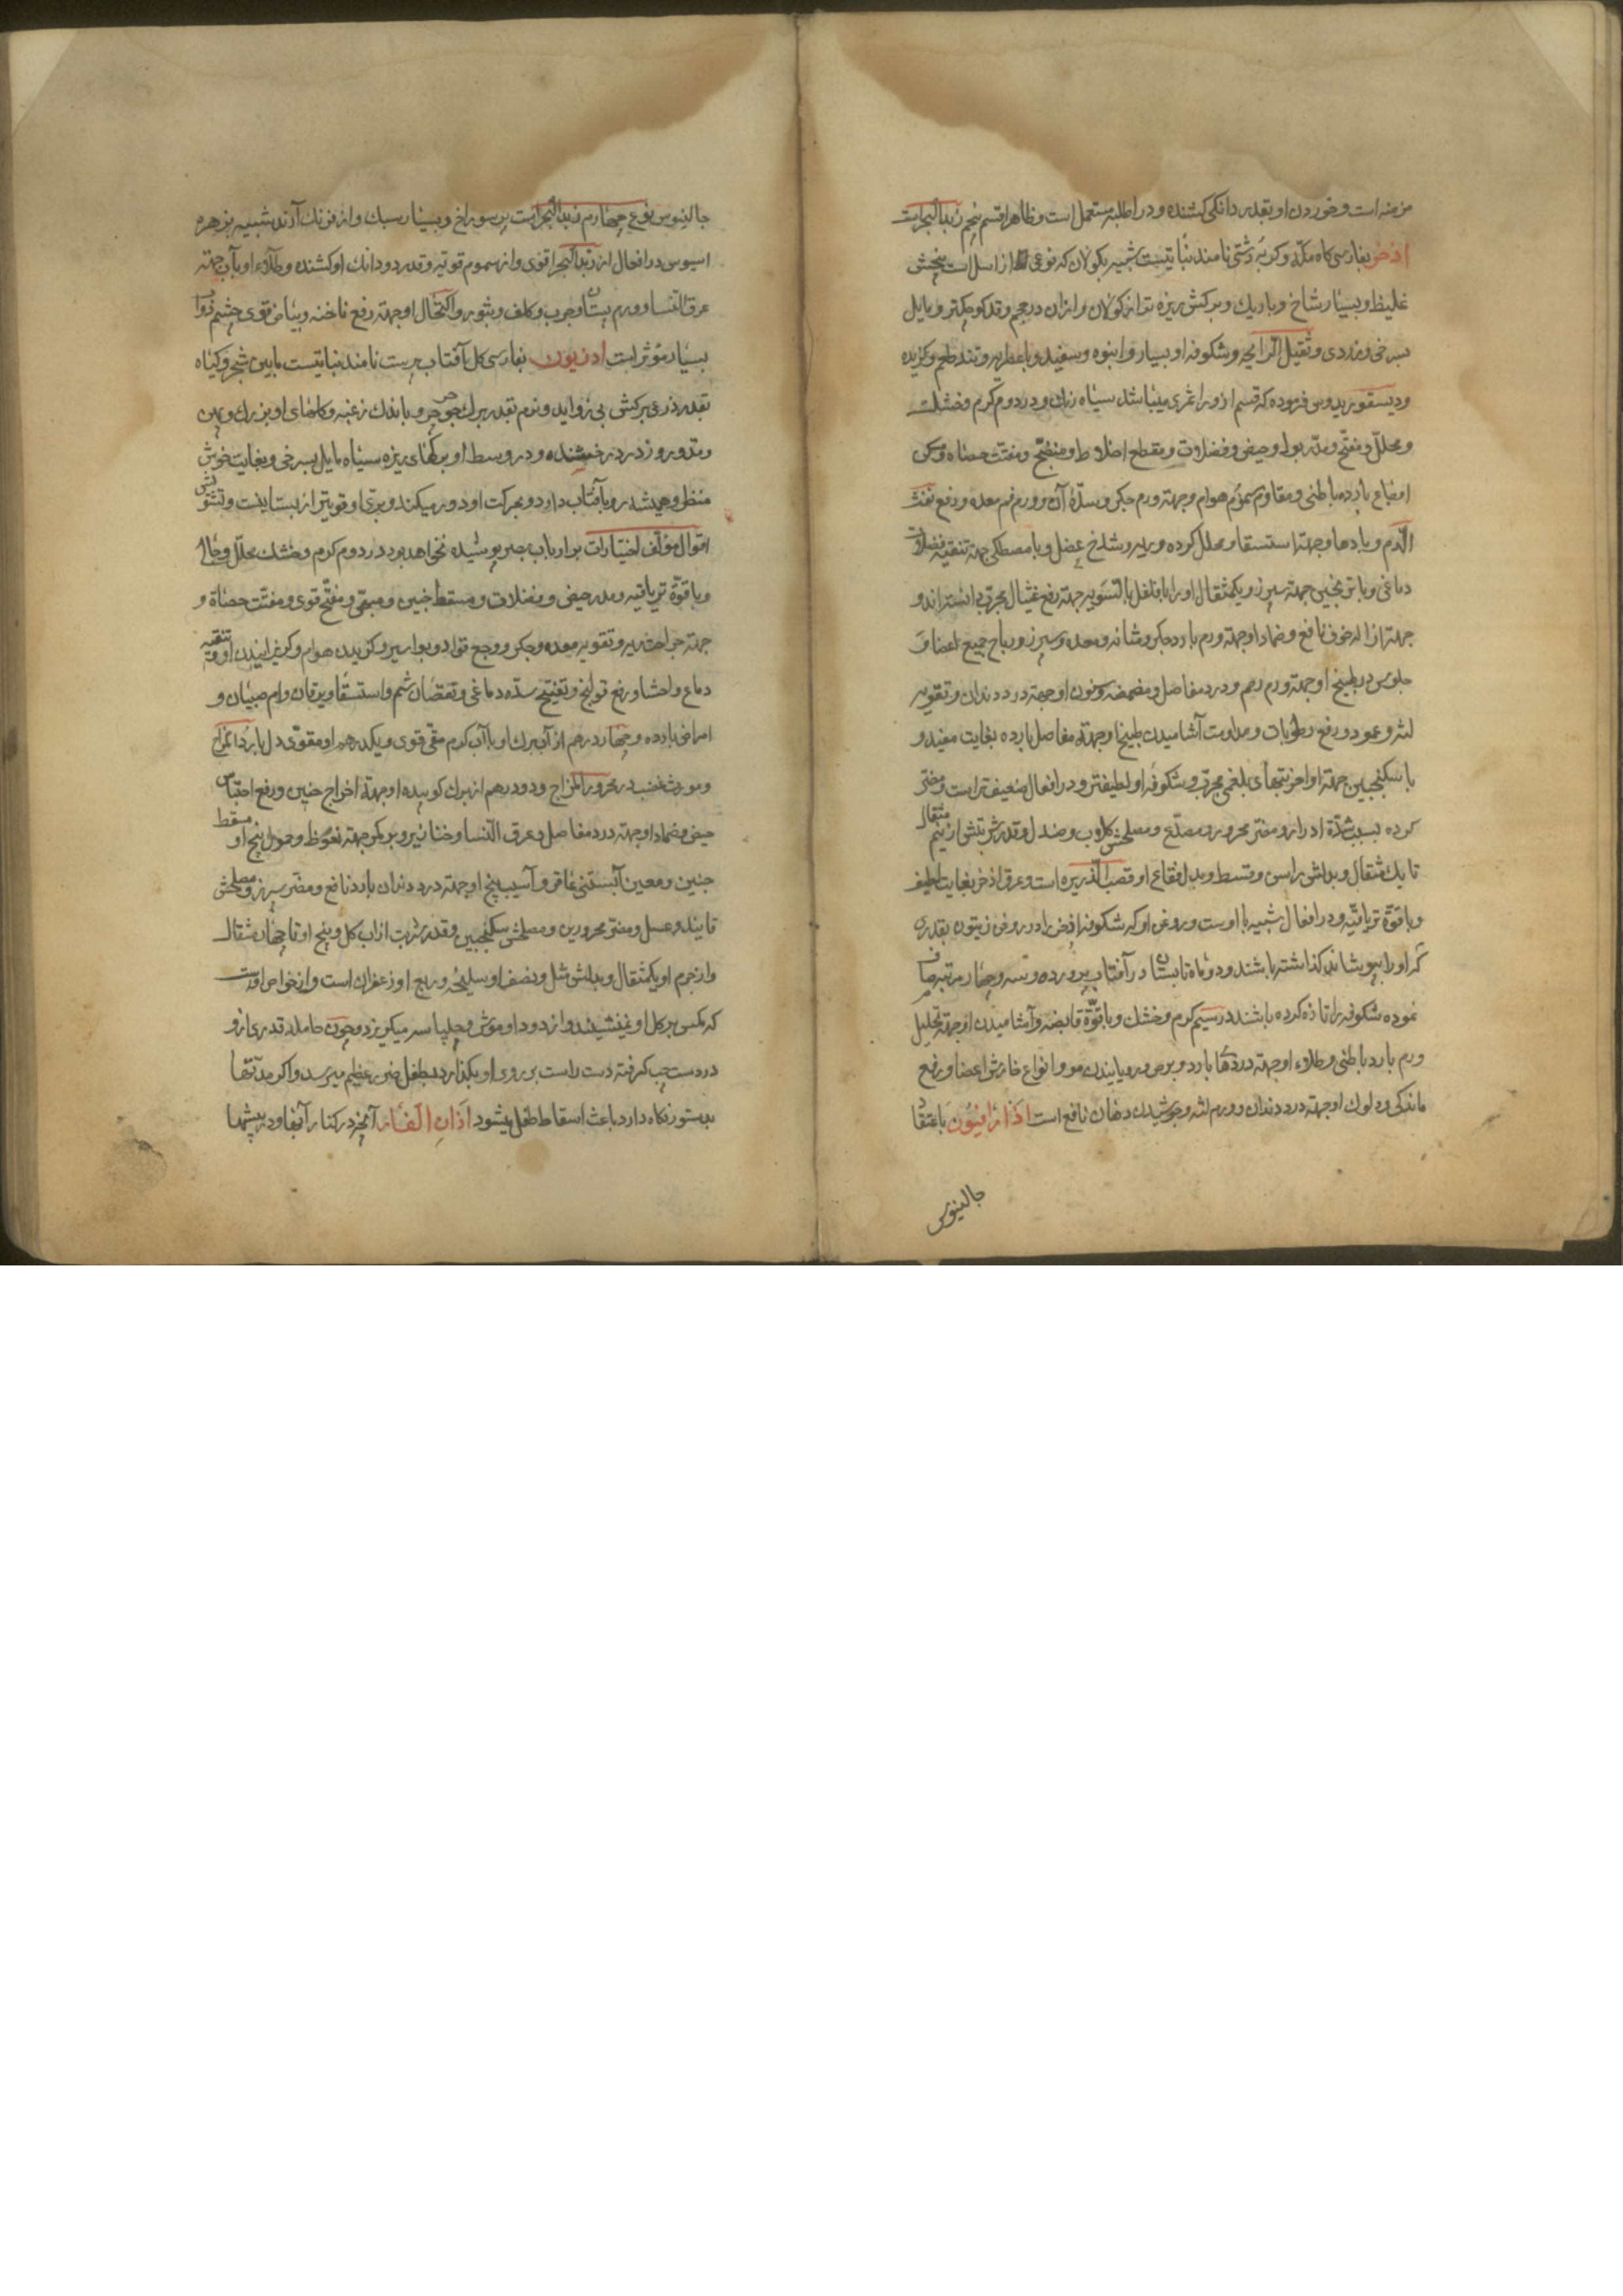 مزمنه است و خوردن او بقدر دانکی کشنده و در اطلیه مستعمل است و ظاهرا قسم پنجم زبد البحر است
اذخر بفارسی کاه مکه و کربه دشتی نامند نباتیست شبیه بکولان که نوعی از اسل است بیخش
غلیظ و بسیار شاخ و باریك و برکش ریزه تر از کولان و از ان در حجم و قد کوچکتر و مایل
بسرخی و زردی و ثقیل الرایحه و شکوفه او بسیار و انبوه و سفید و با عطریه و تند طعم و کزیده
و دیسقوریدوس فرموده که قسم از و را ثمری میباشد سیاه رنك و در دوم کرم و خشك
و محلل و مفتح و مدر بول و حیض و فضلات و مقطع اخلاط و منضج و مفتت حصاه و مسکن
اوجاع بارده باطنی و مقاوم سموم هوام و جهته ورم جکر و سدّهٔ آن و ورم فم معده و رفع نفث
الدّم و بادها و جهته استسقا و محلل کرده و ریه و شدخ عضل و با مصطکی جهته تنقیه فضلات
دماغی و با ترنجبین جهته سپرز و یکمثقال او را با فلفل بالسّویه جهته رفع غثیان مجرّب دانسته اند و
جهته ازاله خوف نافع و ضماد او جهته ورم بارد جکر و مثانه و معده و سپرز و ریاح جمیع اعضا و
جلوس در طبیخ او جهته ورم رحم و درد مفاصل و مضمضه و سنون او جهته درد دندان و تقویه
لثه و عمود و رفع رطوبات و مداومت آشامیدن طبیخ او جهته مفاصل بارده بغایت مفید و
با سکنجبین جهته اواخر تبهای بلغمی مجرّب و شکوفه او لطیفتر و در افعال ضعیفتر است و مضر
کرده بسبب شدّة ادرار و مضر محرور و مصدّع و مصلحش کلاب و صندل و قدر شربتش از نیم مثقال
تا یك مثقال و بدلش راسن و قسط و بدل فقاع او قصب الذّریره است و عرق اذخر بغایت لطیف
و با قوّة تریاقیّه و در افعال شبیه با اوست و روغن او که شکوفه اذخر را در روغن زیتون بقدری
که او را بپوشاند کذاشته باشند و دو ماه تابستان در آفتاب پرورده و سه و چهار مرتبه صاف
نموده شکوفه را تازه کرده باشند در سیم کرم و خشك و با قوّة قابضه و آشامیدن او جهته تحلیل
ورم بارد باطنی و طلاء او جهته دردهای بارد و برص و رویانیدن مو و انواع خارش اعضا و رفع
ماندکی و دلوك او جهته درد دندان و ورم لثه و جوشیدن دهان نافع است اذارافیون باعتقاد
جالینوس
جالینوس نوع چهارم زبد البحر است پر سوراخ و بسیار سبك و از فرنك آرند شبیه بزهره
اسیوس در افعال از زبد البحر اقوی و از سموم قویه و قدر دو دانك او کشنده و طلاء او بآب جهته
عرق النّسا و ورم پستان و جرب و کلف و بثور و اکتحال او جهته رفع ناخنه و بیاض قوی چشم دواب
بسیار مؤثر است اذریون بفارسی کل آفتاب پرست نامند نباتیست مابین شجر و کیاه
بقدر ذرعی برکش بی زواید و نرم بقدر برك جرجیر و باندك زغبه و کلهای او بزرك و پهن
و مدور و زرد درخشنده و در وسط او برکهای ریزه سیاه مایل بسرخی و بغایت خوش
منظر و همیشه رو بآفتاب دارد و بحرکت او دور میکند و برّی او قویتر از بستانیست و تشویش
اقوال مؤلف اختیارات بر ارباب خبر پوشیده نخواهد بود در دوم کرم و خشك محلل و جالی
و با قوّة تریاقیه و مدر حیض و فضلات و مسقط جنین و مبهی و مفتح قوی و مفتّت حصاة و
جهته جراحت ریه و تقویه معده و جکر و وجع فؤاد و بواسیر و کزیدن هوام و کریزانیدن او و تنقیه
دماغ و احشا و رفع قولنج و تفتیح سدّه دماغی و نقصان شم و استسقا و یرقان و ام صبیان و
امراض بارده و چهار درهم از آب برك او با آب کرم مقی قوی و یکدرهم او مقوّی دل بارد المزاج
و مورث غضب در محرور المزاج و دو درهم از برك کوبیده او جهتة اخراج جنین و رفع احتباس
حیض و ضماد او جهته درد مفاصل و عرق النّسا و خنازیر و بر کمر جهته نعوظ و حمول بیخ او مسقط
جنین و معین آبستنی عاقر و آسیب بیخ او جهته درد دندان بارد نافع و مضر سپرز و مصلحش
قایند و عسل و مضر محرورین و مصلحش سکنجبین و قدر شربت از اب کل و بیخ او تا چهار مثقال
و از جرم او یکمثقال و بدلش مثل و نصف او سلیخه و ربع او زعفران است و از خواص اوست
که مکس بر کل او نمینشیند و از دود او موش و چلپاسه میکریزد و چون حامله قدری از و
در دست چپ کرفته دست راست بر روی او بکذارد بطفل ضرر عظیم میرسد و اکر مدّتها
بدستور نکاه دارد باعث اسقاط طفل میشود اذان الفار آنچه در کنار آبها و در بیشها